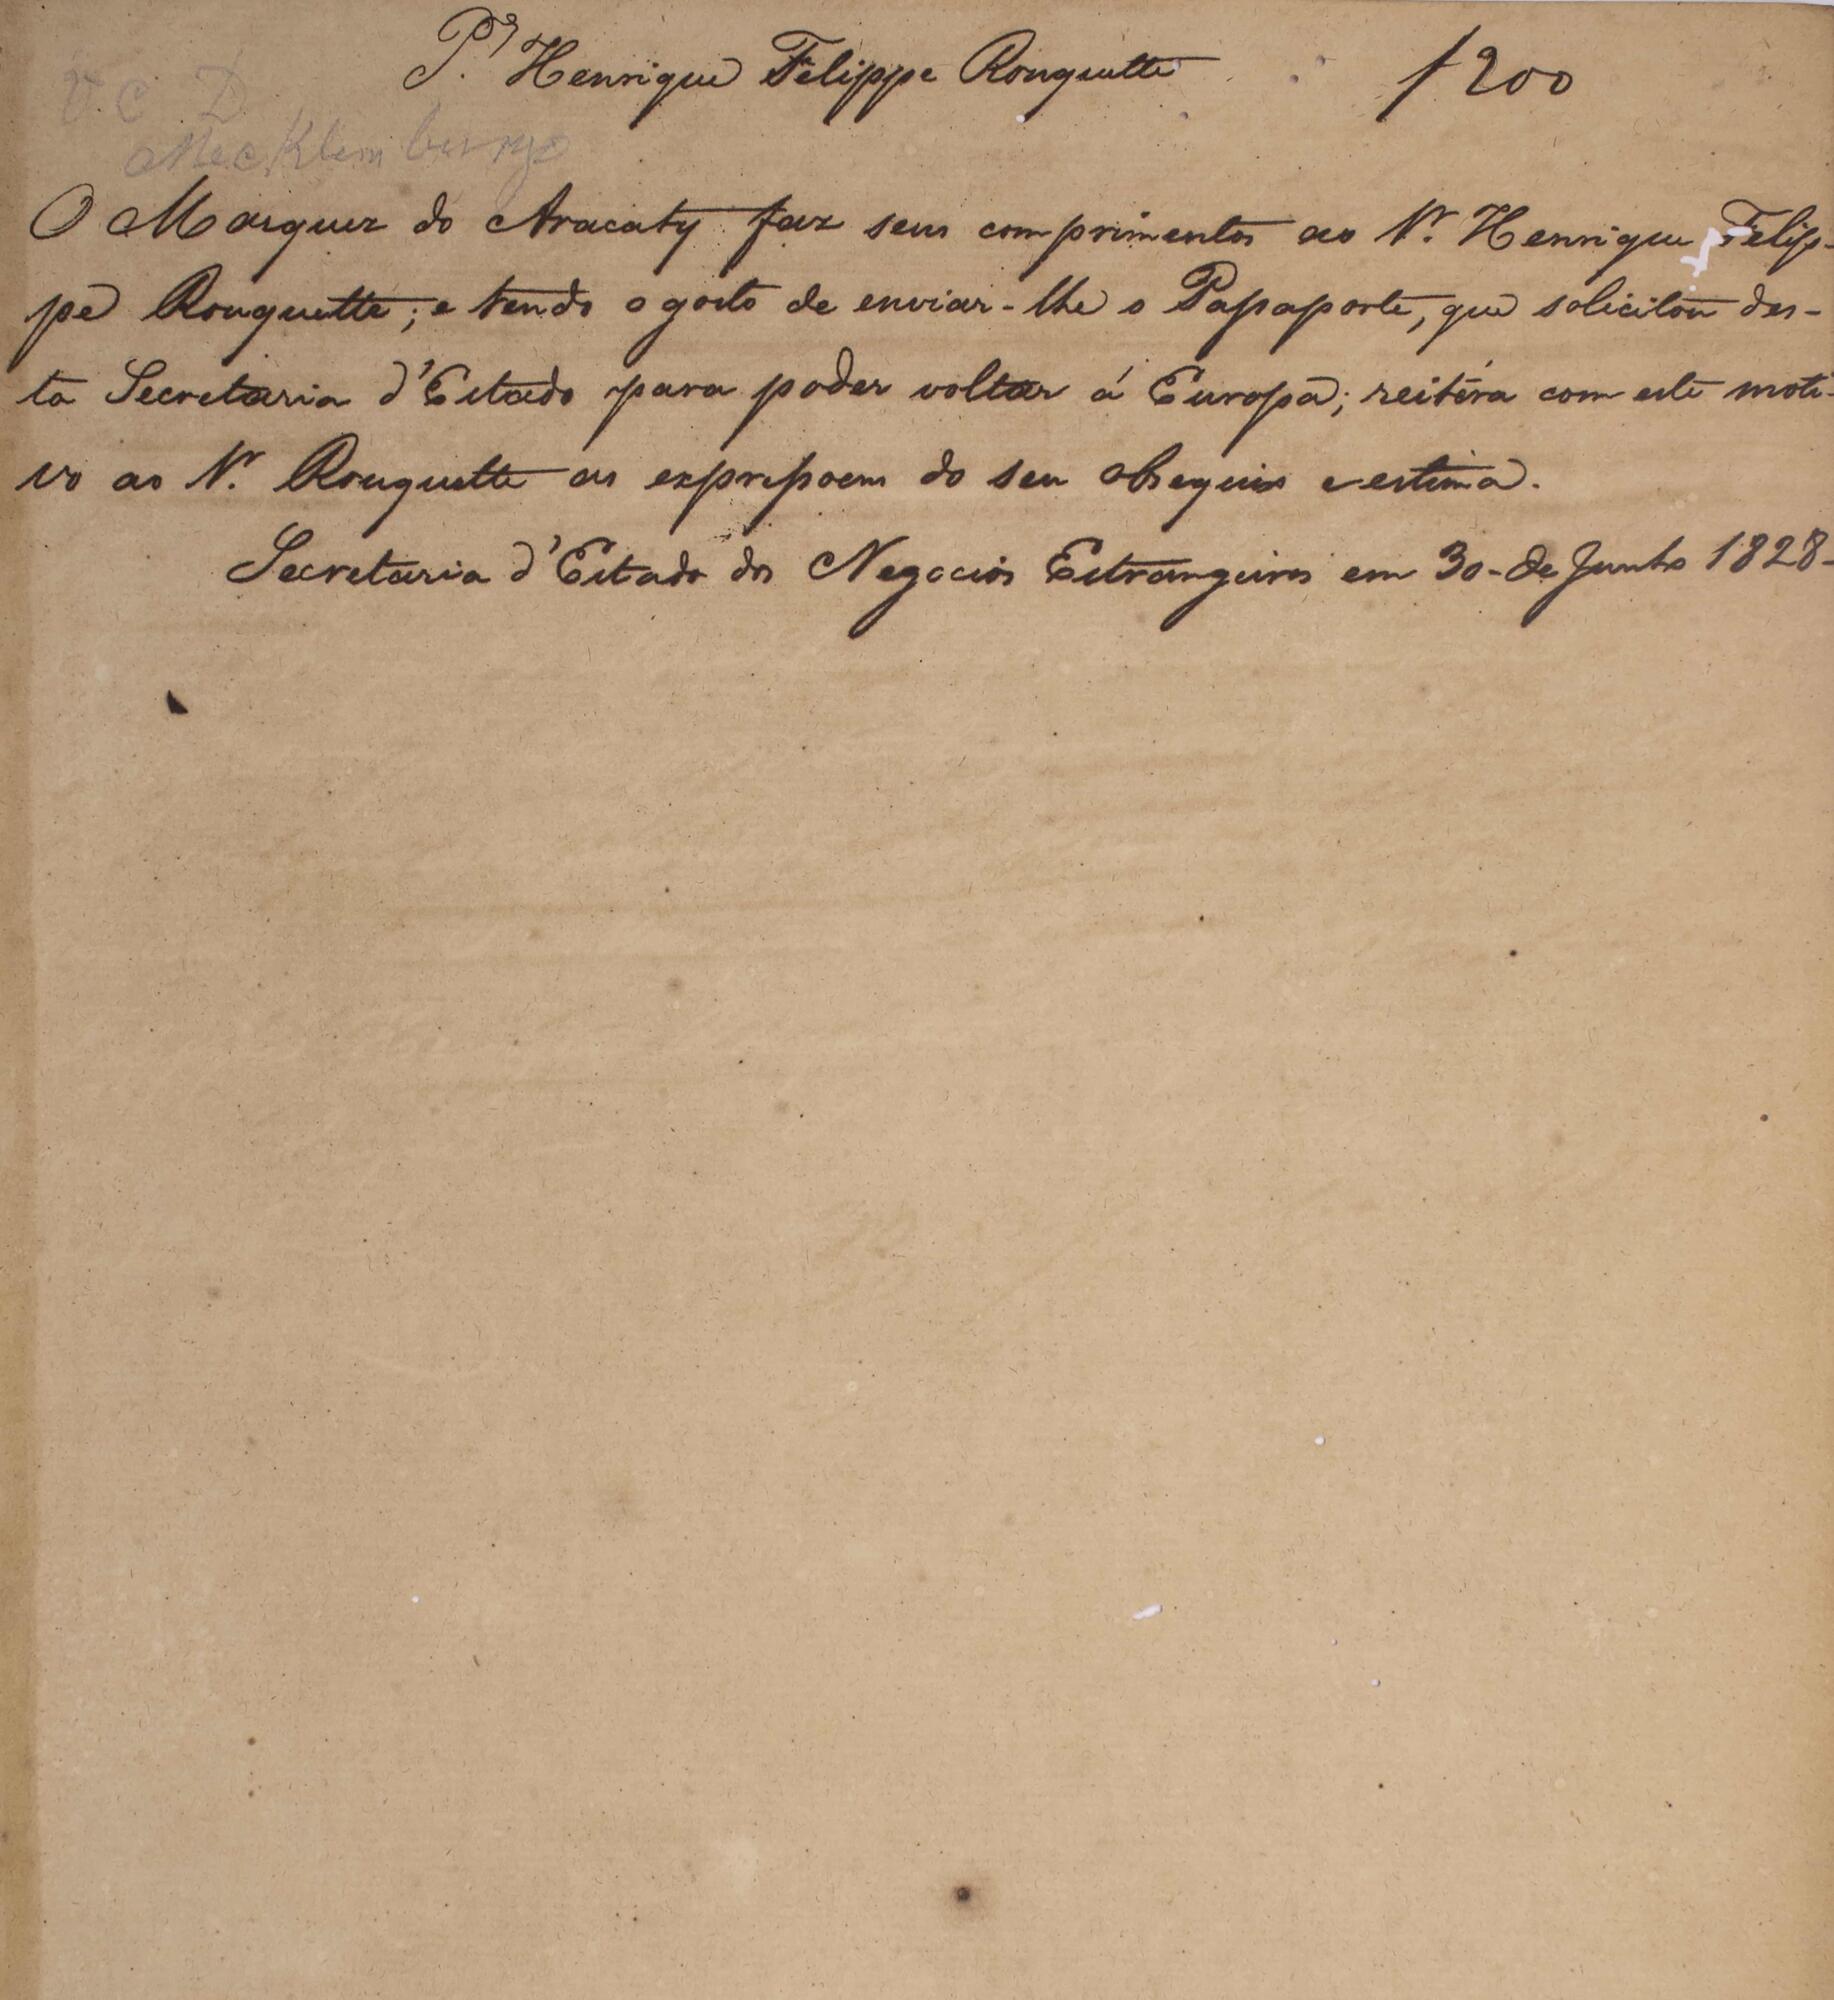 Pª Henrique Felippe Rouquette 1200
V. C. D.
Mecklemburgo
O Marquez do Aracaty faz seus comprimentos ao Sr. Henrique Felip-
pe Rouquette; e tendo o gosto de enviar-lhe o Passaporte, que solicitou des-
ta Secretaria d'Estado para poder voltar á Europa; reitéra com este moti-
vo ao Sr. Rouquette as expressoens do seu obsequio e estima.
Secretaria d'Estado dos Negocios Estrangeiros em 30 - de Junho 1828 -